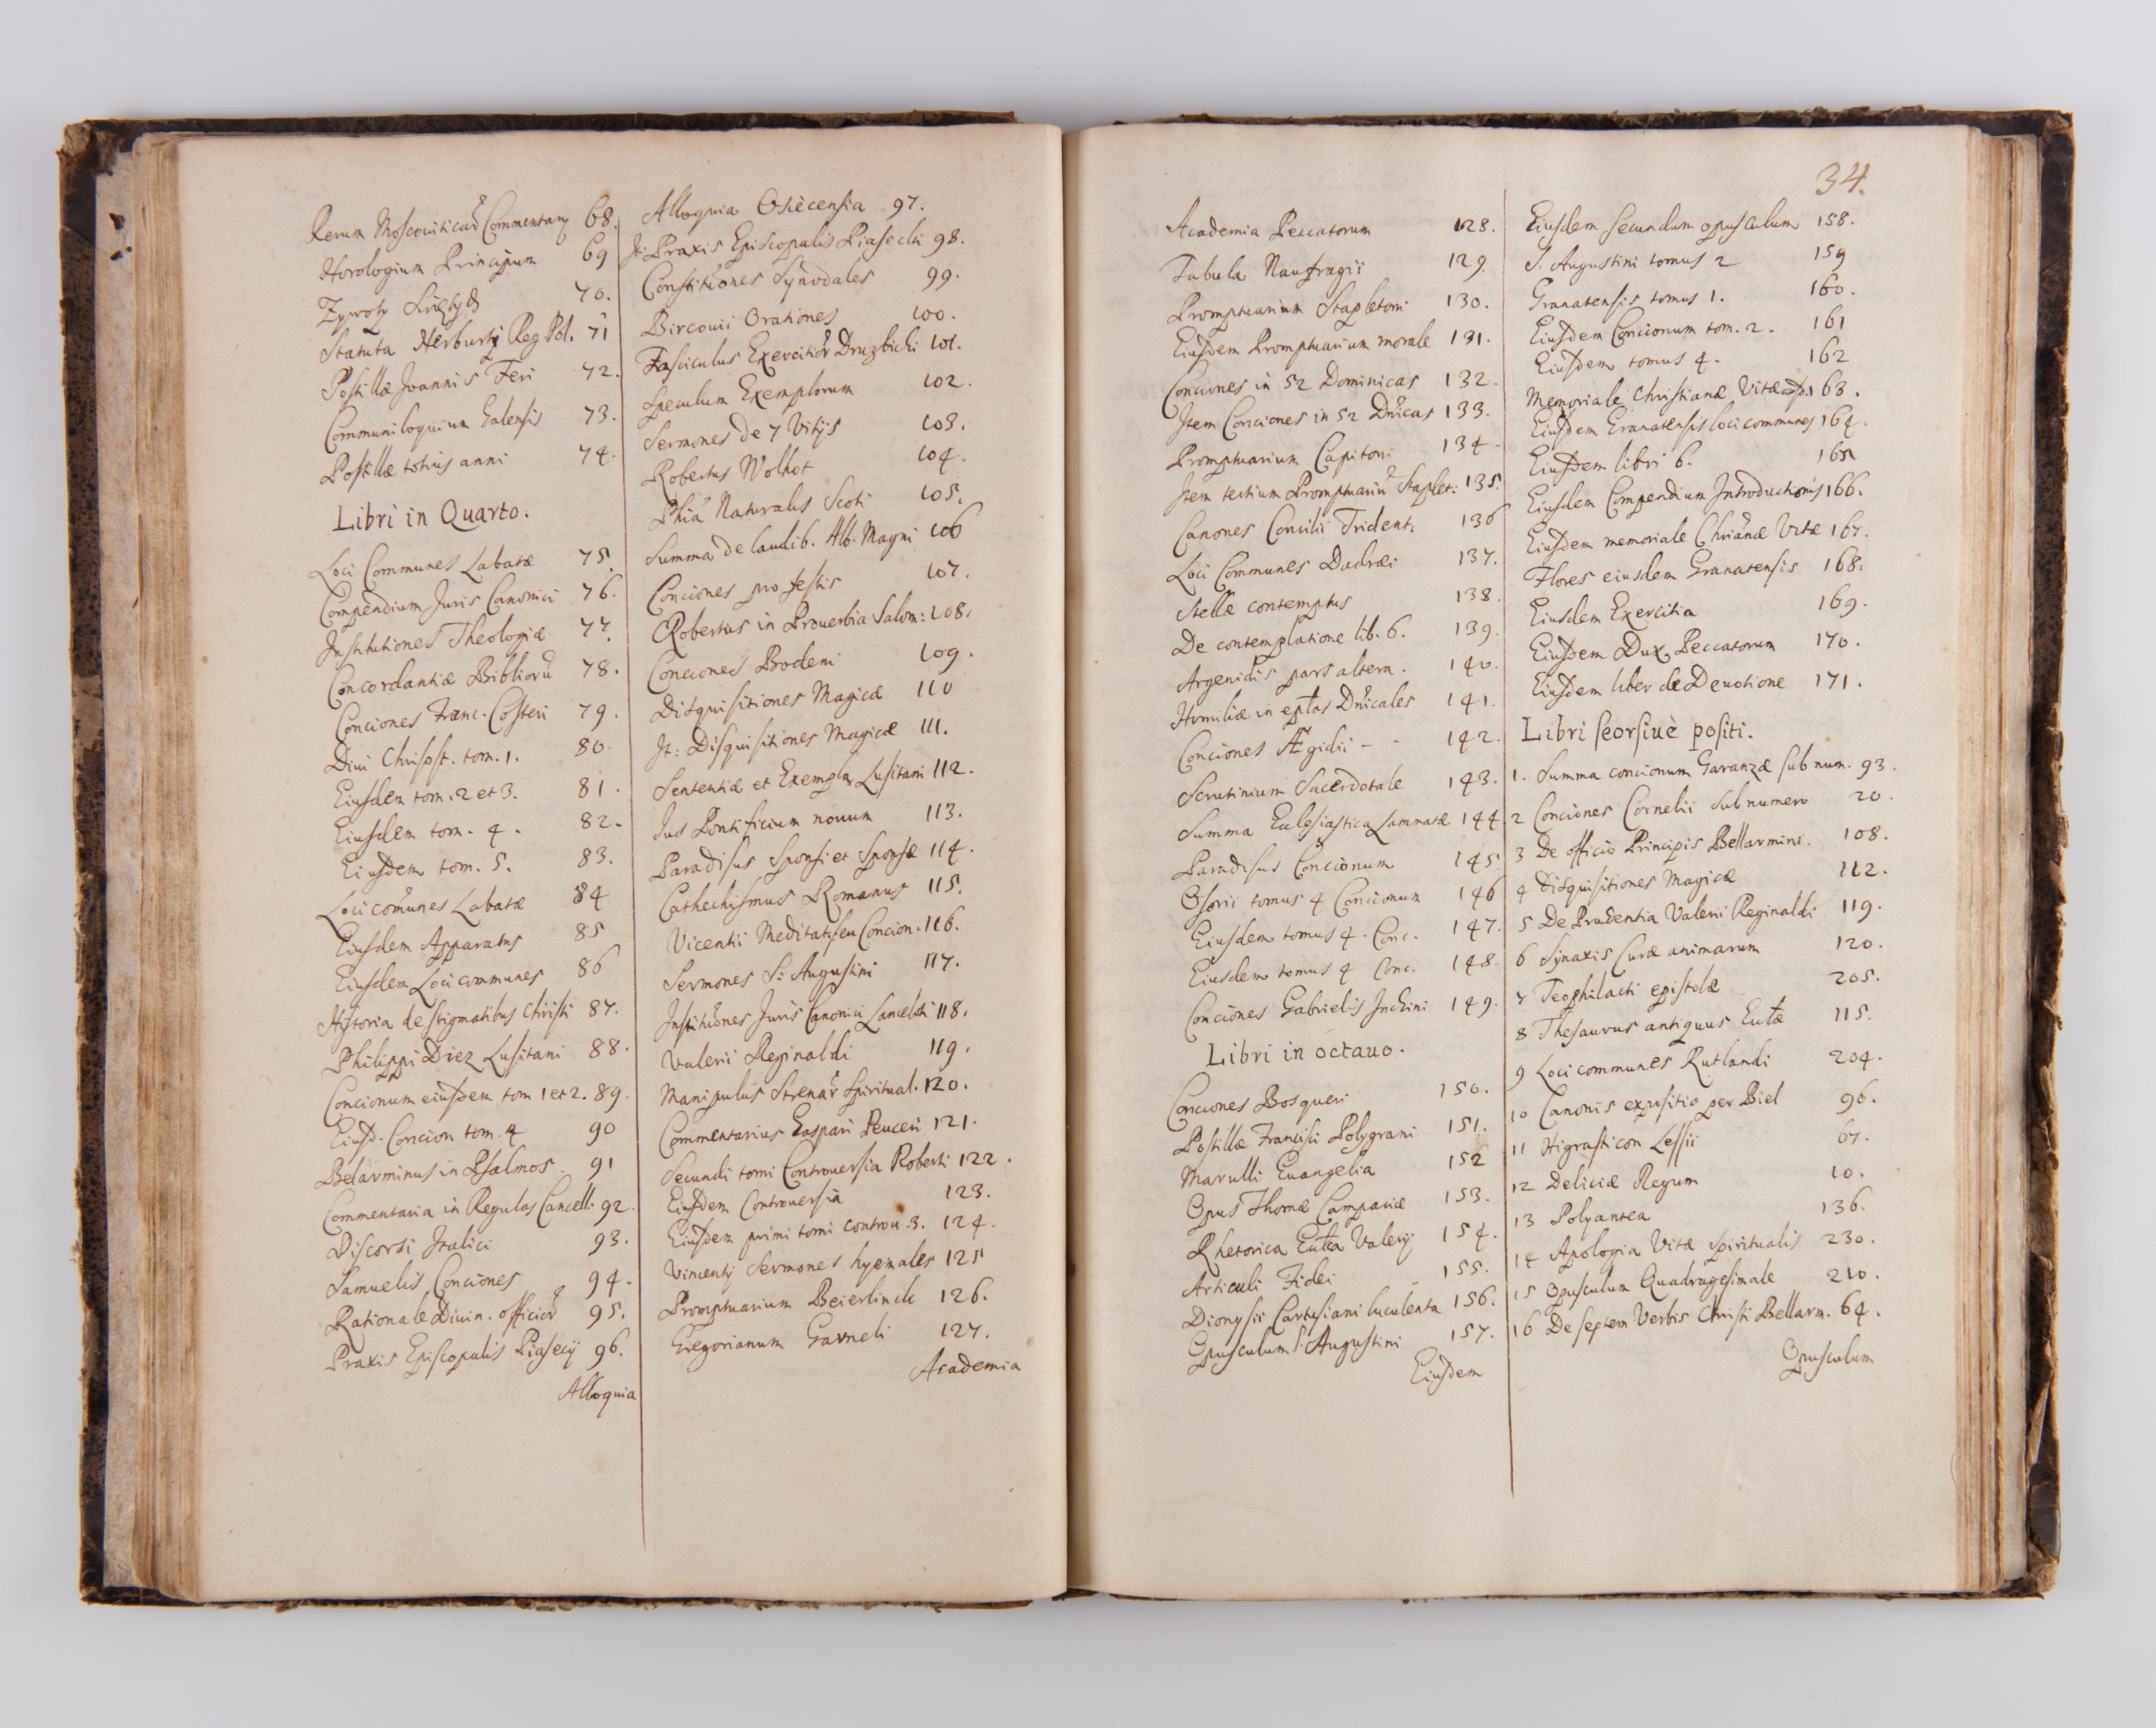 Rerum Moscouiticarũ Commentarÿ 68.
Horologium Principum 69
Zywoty Swiętych 70.
Statuta Herburti Reg Pol. 71
Postillæ Joannis Feri 72.
Communiloquium Galensis 73.
Postillæ totius anni 74.
Libri in Quarto.
Loci Communes Labatæ 75.
Compendium Juris Canonici 76.
Institutiones Theologiæ 77.
Concordantiæ Bibliorũ 78.
Conciones Franc. Costeri 79.
Diui Chrisost. tom. 1. 80.
Eiusdem tom. 2 et 3. 81.
Eiusdem tom. 4. 82.
Eiusdem tom. 5. 83.
Loci com̃unes Labatæ 84
Eiusdem Apparatus 85
Eiusdem Loci communes 86
Hystoria de stigmatibus Christi 87.
Philippi Diez Lusitani 88.
Concionum eiusdem tom 1 et 2. 89.
Eiusd. Concion tom. 4 90
Belarminus in Psalmos 91
Commentaria in Regulas Cancell. 92.
Discorsi Italici 93.
Samuelis Conciones 94.
Rationale Diuin. officior 95.
Praxis Episcopalis Piasecÿ 96.
Alloquia
Alloquia Osiecensia 97.
It. Praxis Episcopalis Piasecki 98.
Constitutiones Synodales 99.
Bircouii Orationes 100.
Fasciculus Exercitior Druzbicki 101.
Speculum Exemplorum 102.
Sermones de 7 Vitijs 103.
Robertus Wolkot 104.
Phia Naturalis Scoti 105.
Summa de laudib. Alb. Magni 106
Conciones pro festis 107.
Robertus in Prouerbia Salom: 108.
Conciones Bodeni 109.
Disquisitiones Magicæ 110
It: Disquisitiones Magicæ 111.
Sententiæ et Exempla Lusitani 112.
Jus Pontificium nouum 113.
Paradisus Sponsi et Sponsæ 114.
Cathechismus Romanus 115.
Vicentii Meditat: seu Concion. 116.
Sermones S: Augustini 117.
Institiones Juris Canonici Lancelloti 118.
Valerii Reginaldi 119.
Manipulus Strenar Spiritual. 120.
Commentarius Gaspari Peuceri 121.
Secundi tomi Controuersia Roberti 122.
Eiusdem Controuersia 123.
Eiusdem primi tomi controu. 3. 124.
Vincentÿ Sermones hyemales 125
Promptuarium Beierlinck 126.
Gregorianum Garneli 127.
Academia
34.
Academia Peccatorum 128.
Tabula Naufragii 129.
Promptuarium Stapletoni 130.
Eiusdem Promptuarium morale 131.
Conciones in 52 Dominicas 132.
Item Conciones in 52 Dnicas 133.
Promptuarium Capitoni 134.
Item tertium Promptuariũ Staplet: 135.
Canones Concilii Trident: 136
Loci Communes Dadræi 137.
Stellæ contemptus 138.
De contemplatione lib. 6. 139.
Argenidis pars altera. 140.
Homiliæ in eptas Dnicales 141.
Conciones Ægidii - - 142.
Scrutinium Sacerdotale 143.
Summa Eclesiastica Lamnatæ 144
Paradisus Concionum 145
Osorii tomus 4 Concionum 146
Eiusdem tomus 4. Conc. 147.
Eiusdem tomus 4 Conc. 148.
Conciones Gabrielis Inchini 149.
Libri in octauo.
Conciones Bosqueri 150.
Postillæ Francisci Polygrani 151.
Marulli Euangelia 152
Opus Thomæ Campaniæ 153.
Rhetorica Eccta Valerÿ 154.
Articuli Fidei 155.
Dionysii Cartusiani luculenta 156.
Opusculum S. Augustini 157.
Eiusdem
Eiusdem secundum opusculum 158.
S. Augustini tomus 2 159
Granatensis tomus 1. 160.
Eiusdem Concionum tom. 2. 161
Eiusdem tomus 4. 162
Memoriale Christianæ Vitæ eiusd. 163.
Eiusdem Granatensis loci communes 164.
Eiusdem libri 6. 165
Eiusdem Compendium Introductionis 166.
Eiusdem memoriale Chrianæ Vitæ 167.
Flores eiusdem Granatensis 168.
Eiusdem Exercitia 169.
Eiusdem Dux Peccatorum 170.
Eiusdem liber de Deuotione 171.
Libri seorsiuè positi.
1. Summa concionum Garanzæ sub num. 93.
2 Conciones Cornelii sub numero 20.
3 De officio Principis Bellarmini. 108.
4 Disquisitiones Magicæ 112.
5 De Prudentia Valerii Reginaldi 119.
6 Synaxis Curæ animarum 120.
7 Teophilacti epistolæ 205.
8 Thesaurus antiquus Ecctæ 115.
9 Loci communes Rutlandi 204.
10 Canonis expositio per Biel 96.
11 Higiasticon Lessii 67.
12 Deliciæ Regum 10.
13 Polyantea 136.
14 Apologia Vitæ spiritualis 230.
15 Opusculum Quadragesimale 210.
16 De septem Verbis Christi Bellarm. 64.
Opusculum